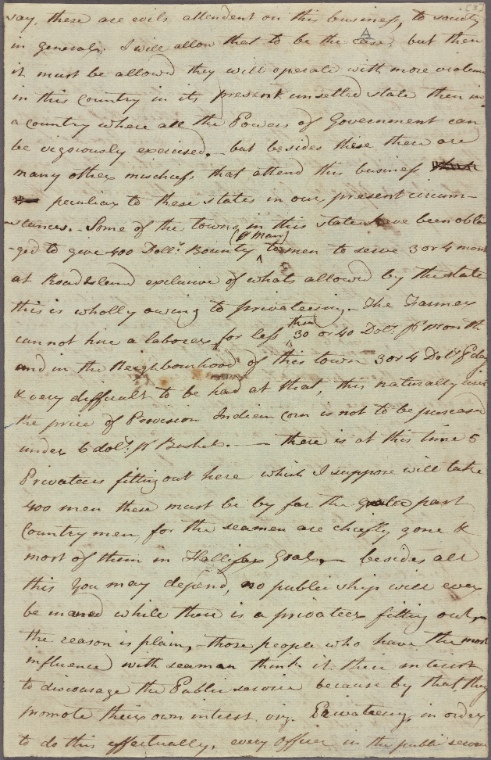 say, these are evils attendent on this business, to society
in general, I will allow that to be the Case, but then
it must be allow'd they will operate with more violence
in this Country in its present unsettled state then in
a country where all the Powers of Government can
be vigoriously exercised, - but besides these there are
many other mischiefs that attend this business
peculiar to these states in our present circum-
-stances. Some of the towns in this state have been obli-
-ged to give 400 Doll.s Bounty p.r man to men to serve 3 or 4 months
at Road Island exclusive of whats allowed by the state
this is wholly owing to privateering. The Farmer
cannot hire a laborer for less then 30 or 40 Dol.s p.r Month
and in the Neighbourhood of this town 3 or 4 Dol.s p.r day
& very difficult to be had at that, this naturally
the price of Provision Indian corn is not to be
under 6 dol.s p.r Bushel. - there is at this time 5
Privateers fitting out here which I suppose will take
400 men these must be by far the part
Country men, for the seamen are chiefly gone &
most of them in Hallifax Goal, - besides all
this you may depend, no public ship will ever
be man'd while there is a privateer fitting out,
the reason is plain, - those people who have the most
influence with seaman think it their interest
to discourage the Public service because by that, they
promote their own interest viz. Privateering, in order
to do this effectually, every Officer in the public service